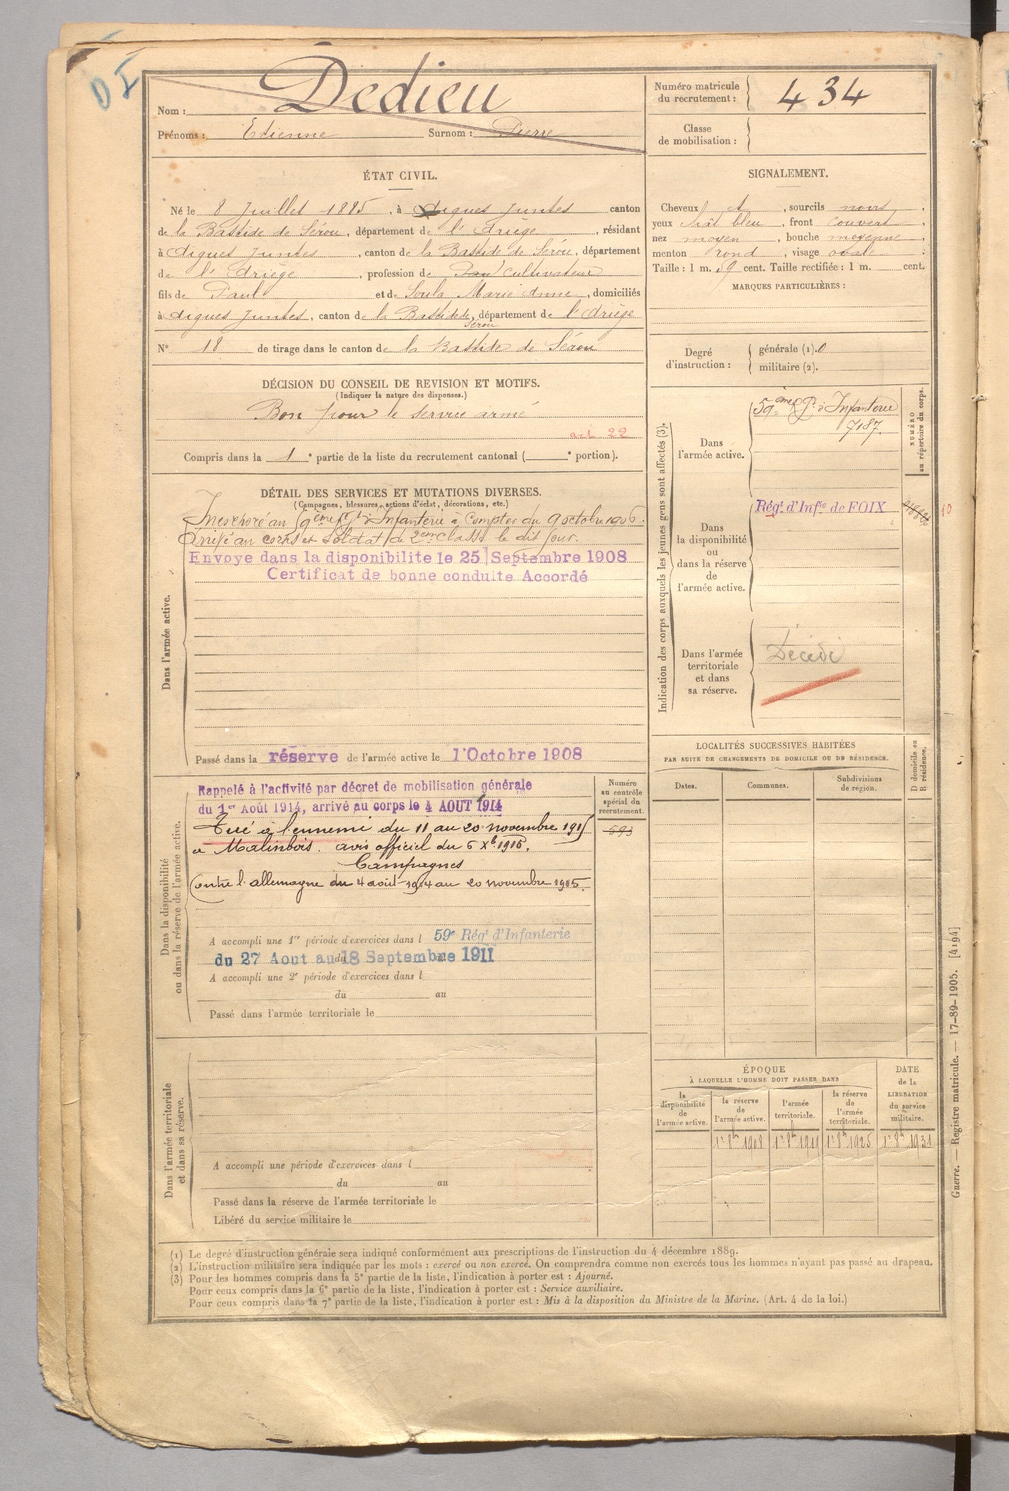 DI
Nom : Dedieu
Prénoms : Etienne Surnom : Pierre
Numéro matricule
du recrutement : 434
Classe
de mobilisation :
ÉTAT CIVIL.
Né le 8 Juillet 1885, à Aigues Juntes canton
de la Bastide de Sérou, département de l'Ariège, résidant
à Aigues Juntes, canton de la Bastide de Sérou, département
de l'Ariège, profession de cultivateur
fils de Paul et de Soula Marie Anne, domiciliés
à Aigues Juntes, canton de la Bastide de Sérou, département de l'Ariège
N° 18 de tirage dans le canton de la Bastide de Sérou
SIGNALEMENT.
Cheveux et, sourcils noirs,
yeux chât bleu, front couvert,
nez moyen, bouche moyenne,
menton rond, visage ovale
Taille : 1 m. 59 cent. Taille rectifiée : 1 m. cent.
MARQUES PARTICULIÈRES :
Degré
d'instruction :
générale (1). 0
militaire (2).
DÉCISION DU CONSEIL DE REVISION ET MOTIFS.
(Indiquer la nature des dispenses.)
Bon pour le service armé
art 22
Compris dans la 1e partie de la liste du recrutement cantonal ( e portion).
DÉTAIL DES SERVICES ET MUTATIONS DIVERSES.
(Campagnes, blessures, actions d'éclat, décorations, etc.)
Dans l'armée active.
Incorporé au 59ème Rgt d'Infanterie à compter du 9 octobre 1906.
Arrivé au corps et soldat de 2eme classe le dit jour.
Envoye dans la disponibilite le 25 Septembre 1908
Certificat de bonne conduite Accordé
Passé dans la réserve de l'armée active le 1'Octobre 1908
Dans la disponibilité
ou dans la réserve de l'armée active.
Rappelé à l'activité par décret de mobilisation générale
du 1er Août 1914, arrivé au corps le 4 AOUT 1914
Tué à l'ennemi du 11 au 20 novembre 1915
a Malinbois. avis officiel du 6 Xb 1916.
Campagnes
Contre l'allemagne du 4 août 1914 au 20 novembre 1915.
A accompli une 1re période d'exercices dans l 59e Régt d'Infanterie
du 27 Aout au 18 Septembre 1911
A accompli une 2e période d'exercices dans l
du au
Passé dans l'armée territoriale le
Numéro
au contrôle
spécial du
recrutement.
693
Dans l'armée territoriale
et dans sa réserve.
A accompli une période d'exercices dans l
du au
Passé dans la réserve de l'armée territoriale le
Libéré du service militaire le
Indication des corps auxquels les jeunes gens sont affectés (3).
NUMÉRO
au répertoire du corps.
Dans
l'armée active.
59ème Rgt d'Infanterie
7187
Dans
la disponibilité
ou
dans la réserve
de
l'armée active.
Régt d'Infie de FOIX
Dans l'armée
territoriale
et dans
sa réserve.
Décédé
LOCALITÉS SUCCESSIVES HABITÉES
PAR SUITE DE CHANGEMENTS DE DOMICILE OU DE RÉSIDENCE.
Dates.
Communes.
Subdivisions
de région.
D domicile ou
R résidence.
ÉPOQUE
À LAQUELLE L'HOMME DOIT PASSER DANS
la
disponibilité
de
l'armée active.
la réserve
de
l'armée active.
l'armée
territoriale.
la réserve
de
l'armée
territoriale.
DATE
de la
LIBÉRATION
du service
militaire.
1r 8b 1908
1r 8b 1925
1r 8b 1931
Guerre. — Registre matricule. — 17-89-1905. [4194]
(1) Le degré d'instruction générale sera indiqué conformément aux prescriptions de l'instruction du 4 décembre 1889.
(2) L'instruction militaire sera indiquée par les mots : exercé ou non exercé. On comprendra comme non exercés tous les hommes n'ayant pas passé au drapeau.
(3) Pour les hommes compris dans la 5e partie de la liste, l'indication à porter est : Ajourné.
Pour ceux compris dans la 6e partie de la liste, l'indication à porter est : Service auxiliaire.
Pour ceux compris dans la 7e partie de la liste, l'indication à porter est : Mis à la disposition du Ministre de la Marine. (Art. 4 de la loi.)